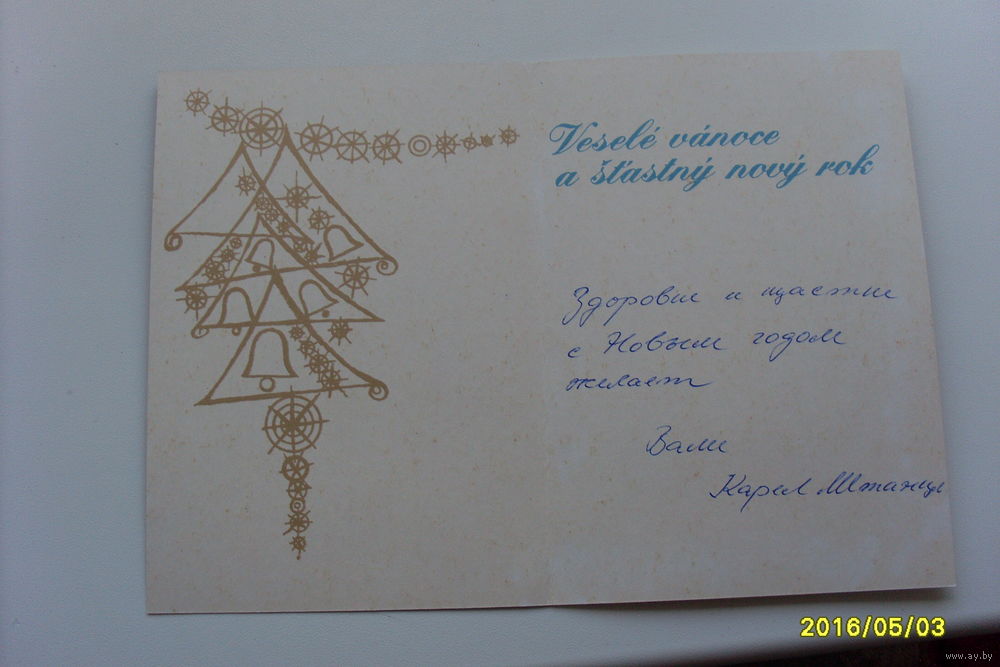 Veselé vánoce
a šťastný nový rok
Здоровье и щастье
с Новым годом
желает
Вами
Карел
2016/05/03
www.ay.by